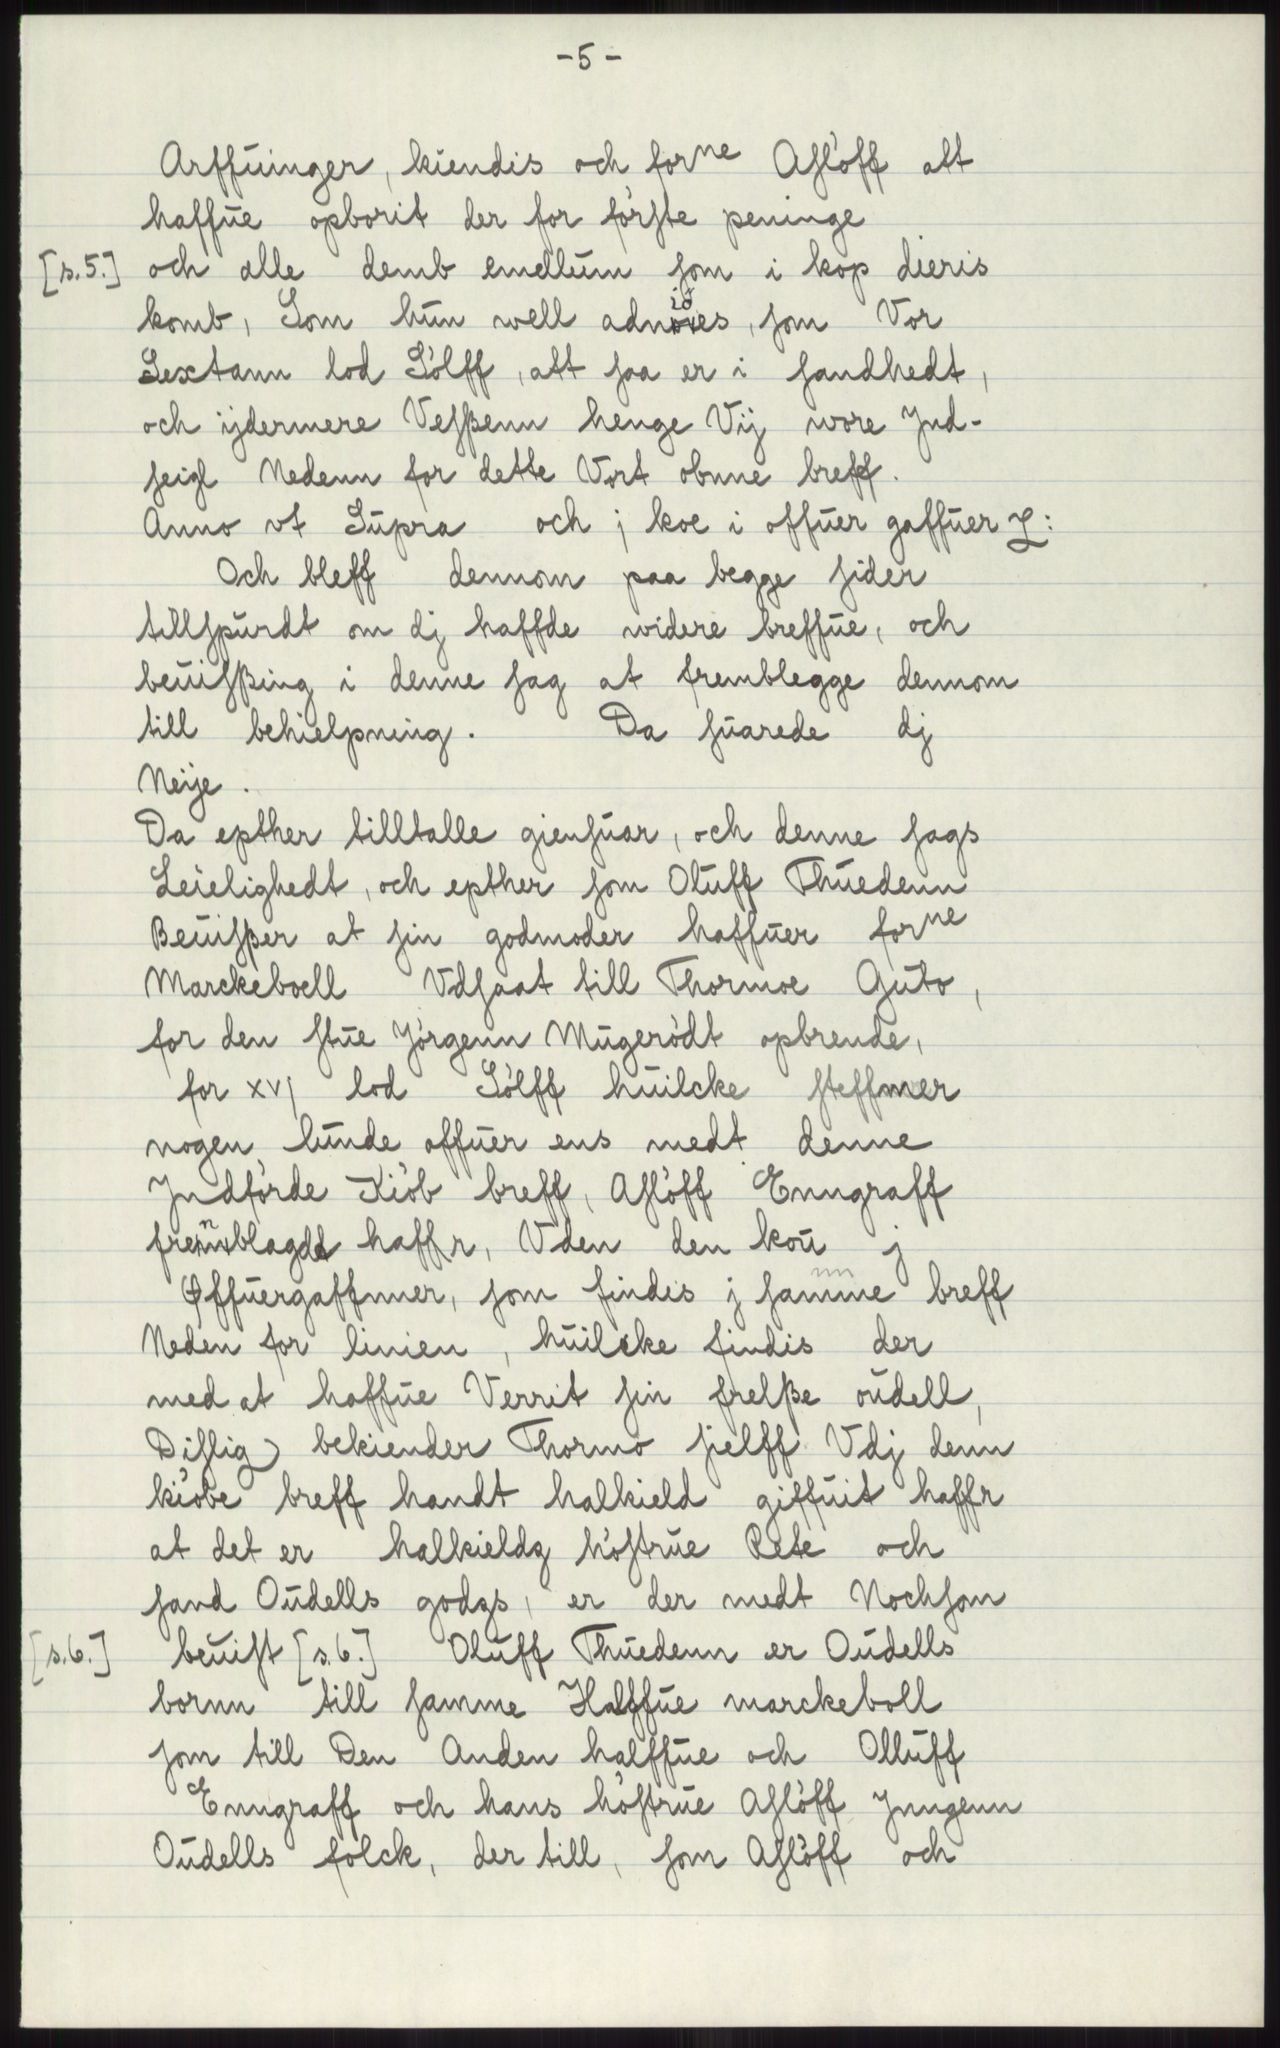 -5-
Arffuinger, kiendis och forne Aslöff att
haffue opborit der for förste peninge
[s.5.] och alle demb emellum som i kop dieris
komb, Som hun well adnöies, som Vor
Sextann lod Sölff, att saa er i sandhedt,
och ijdermere Vesßenn henge Vij wore Jnd-
seigl Nedenn for dette Vort obnne breff.
Anno vt Supra och j koe i offuer gaffuer
Och bleff dennom paa begge sider
tillspurdt om dj haffde widere breffue, och
beuisßing i denne sag at fremblegge dennom
till behielpning. Da suarede dj
Neije.
Da epther tilltalle giensuar, och denne sags
Leielighedt, och epther som Oluff Thuedenn
Beuisßer at sin godmoder haffuer forne
Marckeboell Vdsaat till Thormoe Guto,
for den stue Jörgenn Mugerödt opbrende,
for xvj lod Sölff huilcke steffmer
nogen lunde offuer ens medt denne
Jndförde Kiöb breff, Aslöff Enngraff
fremblagdt haffr, Vden den kou j
Offuergaffmer, som findes j samme breff
Neden for linien, huilcke findis der
med at haffue Verrit sin frelße oudell,
Dislig bekiender Thormo sielff Vdj denn
kiöbe breff handt halkield giffuit haffr
at det er halkieldz höstrue Rete och
sand Oudells godzs, er der medt Nochsom
[s.6.] beuist [s.6.] Oluff Thuedenn er Oudells
bornn till samme Halffue marckeboll
som till Den Anden halffue och Olluff
Enngraff och hans höstrue Aslöff Jnngenn
Oudells folck, der till, som Aslöff och